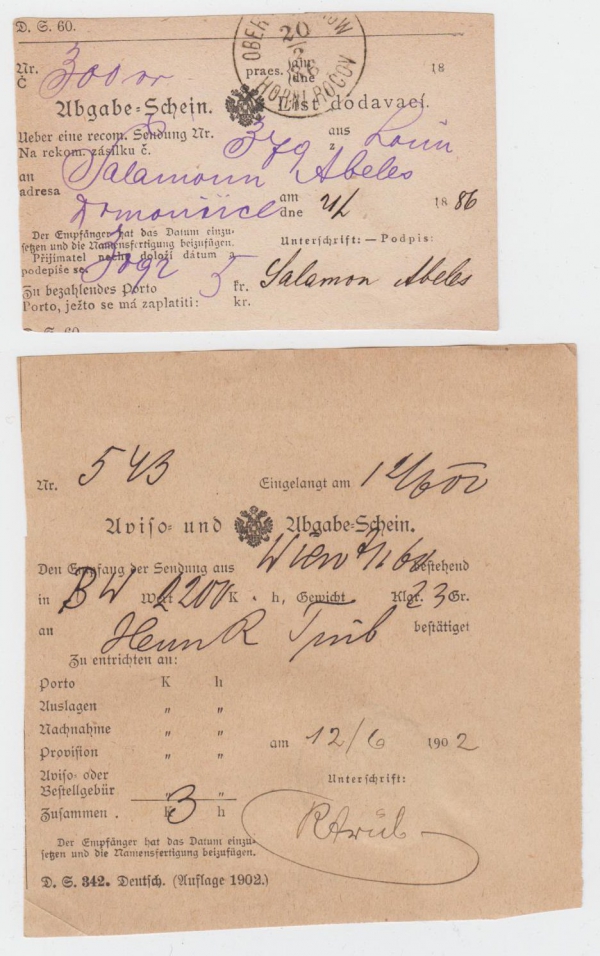 D. S. 60.
OBER HORNÍ ROČOV
20
Nr.
Č
praes. am
dne
18
Abgabe-Schein. List dodavací.
Ueber eine recom. Sendung Nr. 379 aus
Na rekom. zásilku č. z
an Salamonn Abeles
adresa
am
dne
1886
Der Empfänger hat das Datum einzu-
setzen und die Namensfertigung beizufügen.
Přijímatel nechť doloží dátum a
podepíše se.
Unterschrift: — Podpis:
Zu bezahlendes Porto 5 kr. Salamon Abeles
Porto, ježto se má zaplatiti: kr.
D. S. 60
Nr. 543 Eingelangt am 12/6
Aviso- und Abgabe-Schein.
Den Empfang der Sendung aus Wien bestehend
in BW Wert 2200 K · h, Gewicht Klgr. 23 Gr.
an bestätiget
Zu entrichten an:
Porto K h
Auslagen " "
Nachnahme " "
Provision " "
am 12/6 1902
Aviso- oder
Bestellgebür " "
Unterschrift:
Zusammen . K 3 h
Der Empfänger hat das Datum einzu-
setzen und die Namensfertigung beizufügen.
D. S. 342. Deutsch. (Auflage 1902.)